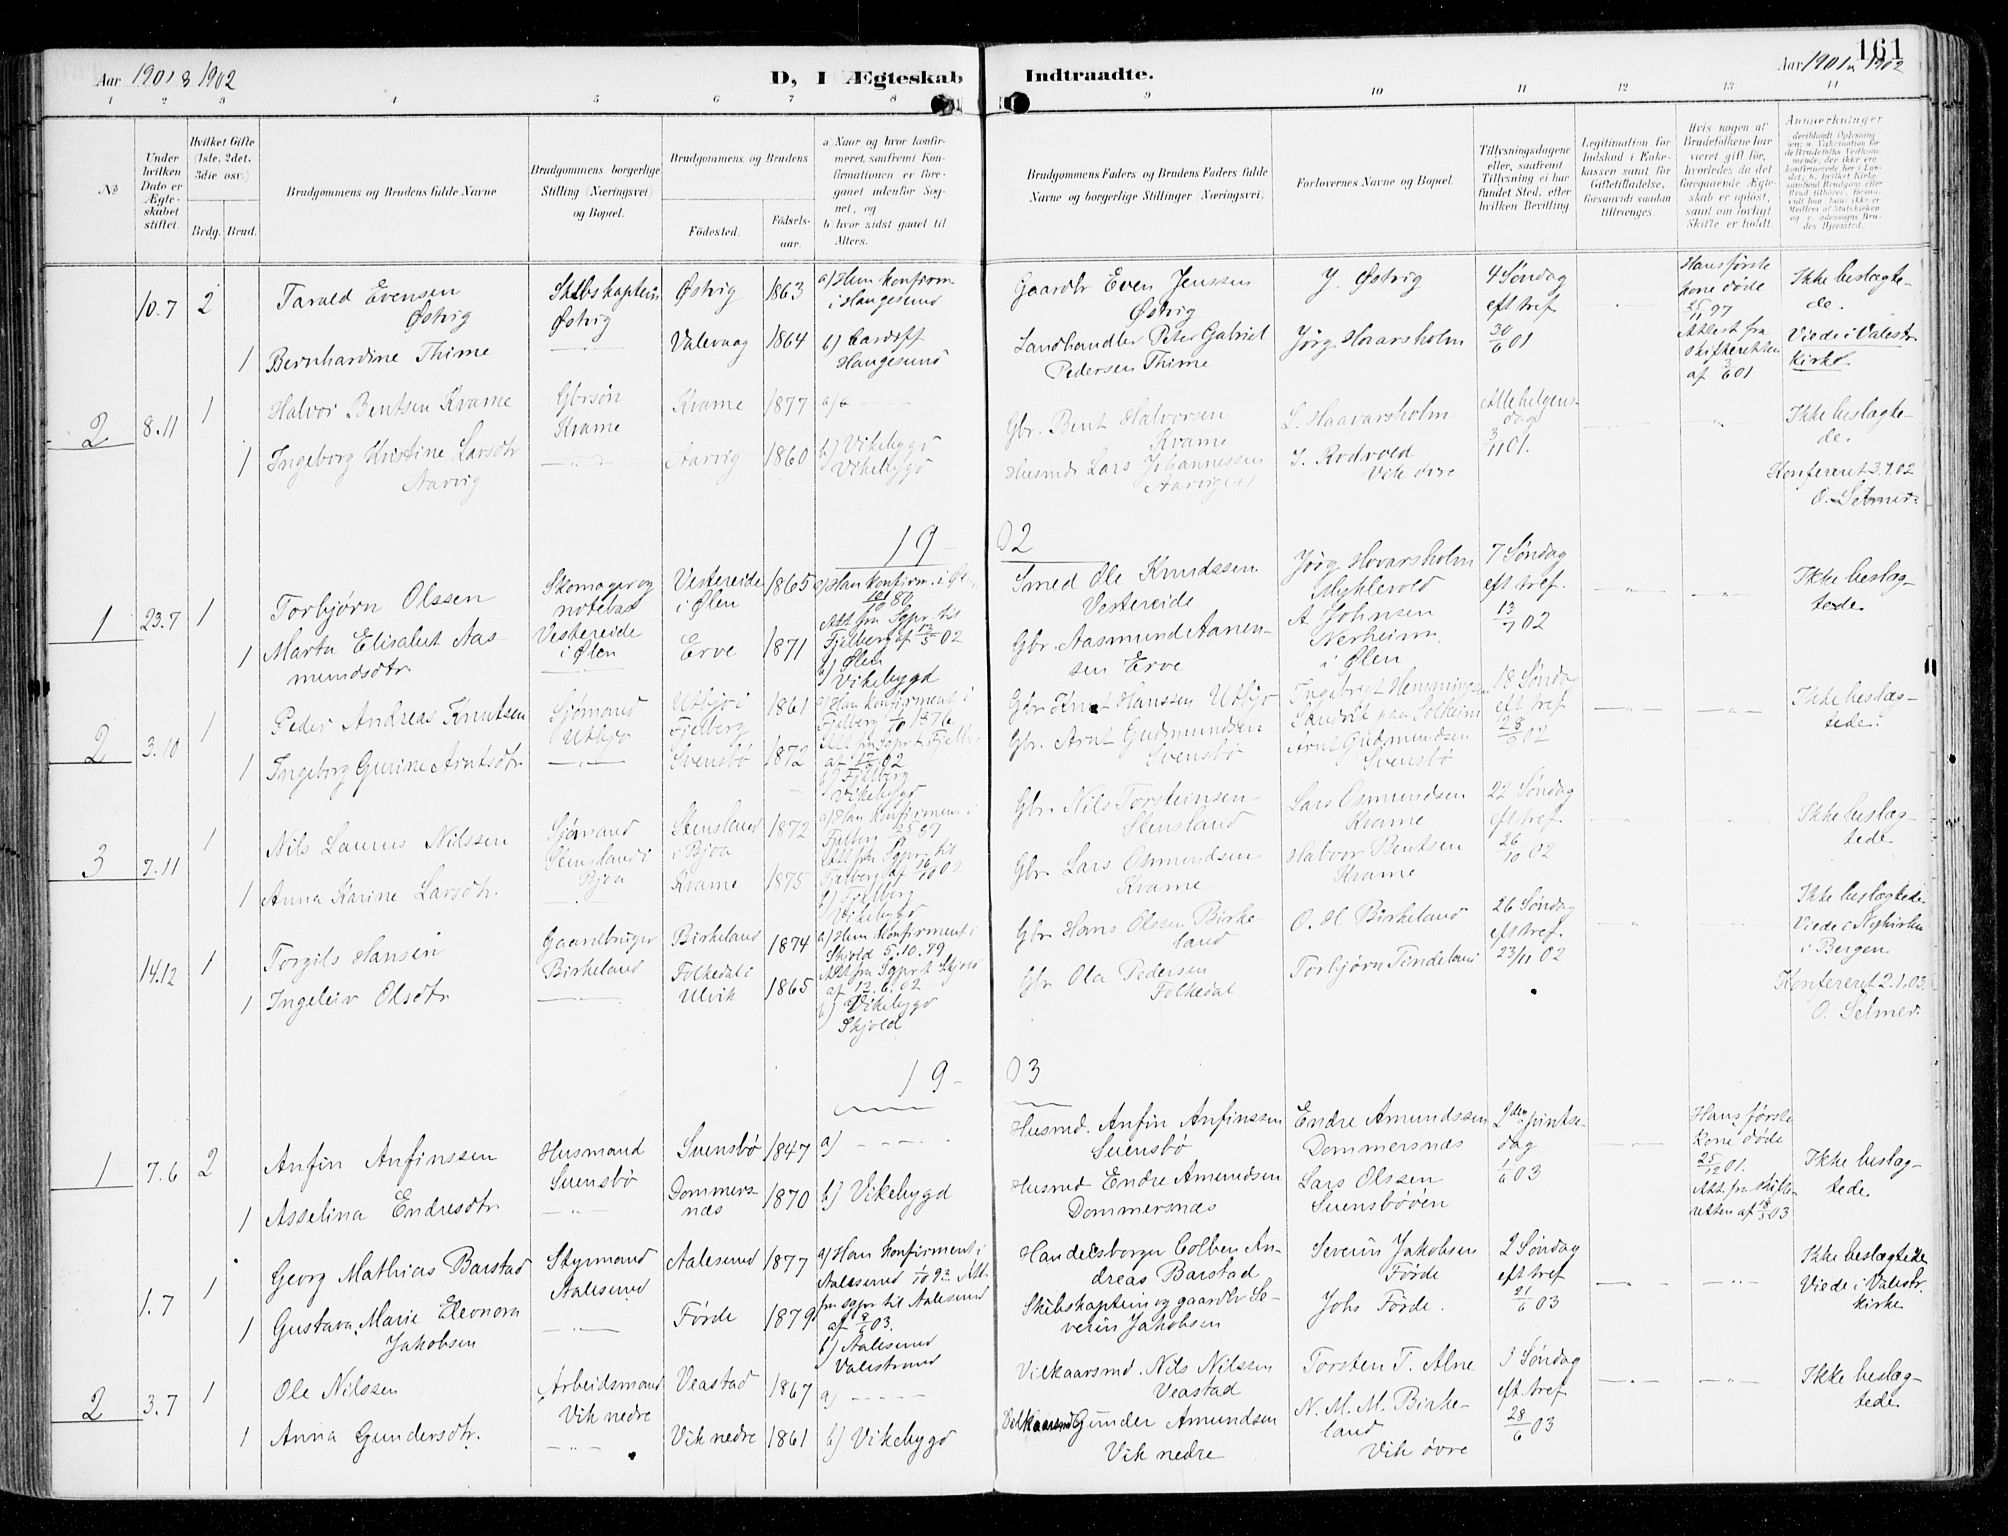 161
Aar 1901 & 1902
D, I Ægteskab
Indtraadte.
Aar 1901 & 1902
1 2 3 4 5 6 7 8 9 10 11 12 13 14
No
Under hvilken Dato er Ægteskabet stiftet.
Hvilket Gifte (1ste, 2det, 3die osv.)
Brdg. Brud.
Brudgommens og Brudens fulde Navne
Brudgommens borgerlige Stilling (Næringsvei) og Bopæl.
Brudgommens og Brudens
Fødested.
Fødselsaar.
a Naar og hvor konfirmeret, saafremt Konfirmationen er foregaaet udenfor Sognet, og
b hvor sidst gaaet til Alters.
Brudgommens Faders og Brudens Faders fulde Navne og borgerlige Stillinger (Næringsvei)
Forlovernes Navne og Bopæl.
Tillysningsdagene eller, saafremt Tillysning ei har fundet Sted, efter hvilken Bevilling
Legitimation for Indskud i Enkekassen samt for Giftetilladelse, forsaavidt saadan tiltrænges.
Hvis nogen af Brudefolkene har været gift før, hvorledes da det foregaaende Ægteskab er opløst, samt om lovligt Skifte er holdt.
Anmerkninger
10.7 2
Tarald Evensen
Østvig
Skibskaptein
Østvig
Østvig 1863
a) Han konfirm
i Haugesund
Gaardbr Even Jenssen
Østvig
J. Østvig
4 Søndag
eft tref
30/6 01
Hans første
kone døde
25/11 97
Attest fra
skifteretten
af 3/6 01
Ikke beslægte-
de.
Viede i Valestr
Kirke.
1 Bernhardine Thime
Valevaag 1864
b) Cardiff
Haugesund
Landhandler Peter Gabriel
Pedersen Thime
Jørg. Hovarsholm
2 8.11 1
Halvor Bentsen Kvame
Gbrsøn
Kvame
Kvame 1877
a)
Gbr. Bent Halvorsen
Kvame
L. Haavarsholm
Allehelgens-
dag
3/11 01.
Ikke beslægte-
de.
1 Ingeborg Kristine Larsdtr
Aarvig
Aarvig 1860
b) Vikebygd
Vikebygd
Husmd Lars Johannessen
J. Rodvold
Vik øvre
Konfereret 3.1.02
O. Selmer
19 02
1 23.7 1
Torbjørn Olssen
Skomager og
notebas
Vestereide
i Ølen
Vestereide
i Ølen
1865
a) Han konfirm. i
Att fra Sgpr. til
Fjelberg af 13/5 02
b) Ølen
Vikebygd
Smed Ole Knudssen
Vestereide
Jørg Hovarsholm
Myklevold
7 Søndag
eft tref
13/7 02
Ikke beslæg-
tede.
1 Marta Elisabet Aas-
mundsdtr
Erve 1871
Gbr. Aasmund Aanen-
sen Erve
A Johnsen
Nerheim
i Ølen
2 3.10 1
Peder Andreas Knutsen
Sjømand
Utbjo
Utbjo i
Fjelberg
1861
a) Han konfirment i
Fjelberg 1/10 1876
Att fra Sgpr t. Fjelbg
b) Fjelberg
Vikebygd
Gbr Knut Hanssen Utbjo
Ingebrigt Henningsen
Sandvik paa Solheim
18 Søndag
eft tref
28/9 02
Ikke beslæg-
tede.
1 Ingeborg Gurine Arntsdtr
Svensbø 1872
Gbr. Arnt Gudmundsen
Svensbø
Arnt Gudmundsen
Svensbø
3 7.11 1
Nils Laurus Nilssen
Sjømand
Stensland i
Bjoa
Stensland
i Bjoa
1872
a) Han konfirment i
Fjelberg
Att fra Sgpr. til
Fjelberg af 16/10 02
b) Fjelberg
Vikebygd
Gbr. Nils Torsteinsen
Stensland
Lars Osmundsen
Kvame
22 Søndag
eft tref
26/10 02
Ikke beslæg-
tede.
1 Anna Karine Larsdtr.
Kvame 1875
Gbr. Lars Osmundsen
Kvame
Halvor Bentsen
Kvame
14.12 1
Torgils Hansen
Gaardbruger
Birkeland
Birkeland 1874
a) Hun konfirment i
Skjold 5.10.79
Att fra Sgpr t Skjold
af 12.6.02
b) Vikebygd
Skjold
Gbr Hans Olssen Birke-
land
O. H Birkeland
26 Søndag
eft tref.
23/11 02
Ikke beslægtede
Viede i Nykirken
i Bergen
1 Ingeleiv Olsdtr
Folkedal i
Ulvik
1865
Gbr. Ola Pedersen
Folkedal
Torbjørn Tindeland
Konfereret 2.1.03.
O. Selmer
19 03
1 7.6 2
Anfin Anfinssen
Husmand
Svensbø
Svensbø 1847
a)
Husmd. Anfin Anfinssen
Svensbø
Endre Amundssen
Dommersnæs
2den pintse-
dag
1/6 03
Hans første
kone døde
25/12 01.
Att. fra skifte-
retten af
Ikke beslæg-
tede
1 Asselina Endresdtr
Dommers-
næs
1870
b) Vikebygd
Husmd Endre Amundsen
Dommersnæs
Lars Olssen
Svensbøøen
1.7 1
Georg Mathias Barstad
Styrmand
Aalesund
Aalesund 1877
a) Han konfirment i
Aalesund 1/10 93. Att.
fra sgpr til Aalesund
af 8/6 03.
b) Aalesund
Valestrand
Handelsborger Colben An-
dreas Barstad
Severin Jakobsen
Førde
2 Søndag
eft tref
21/6 03
Ikke beslægtede
Viede i Valestr.
kirke
1 Gustava Marie Eleonora
Jakobsen
Førde 1879
Skibskaptein og gaardbr Se-
verin Jakobsen
Johs Førde.
2 3.7 1
Ole Nilssen
Arbeidsmand
Vik nedre
Veastad 1867
a)
Vilkaarsmd. Nils Nilssen
Veastad
Torsten T. Alne
3 Søndag
eft tref
28/6 03
Ikke beslæg-
tede
1 Anna Gundersdtr.
Vik nedre 1861
b) Vikebygd
Vilkaarsmd Gunder Amundsen
Vik nedre
N. M. M. Birke-
land
Vik øvre